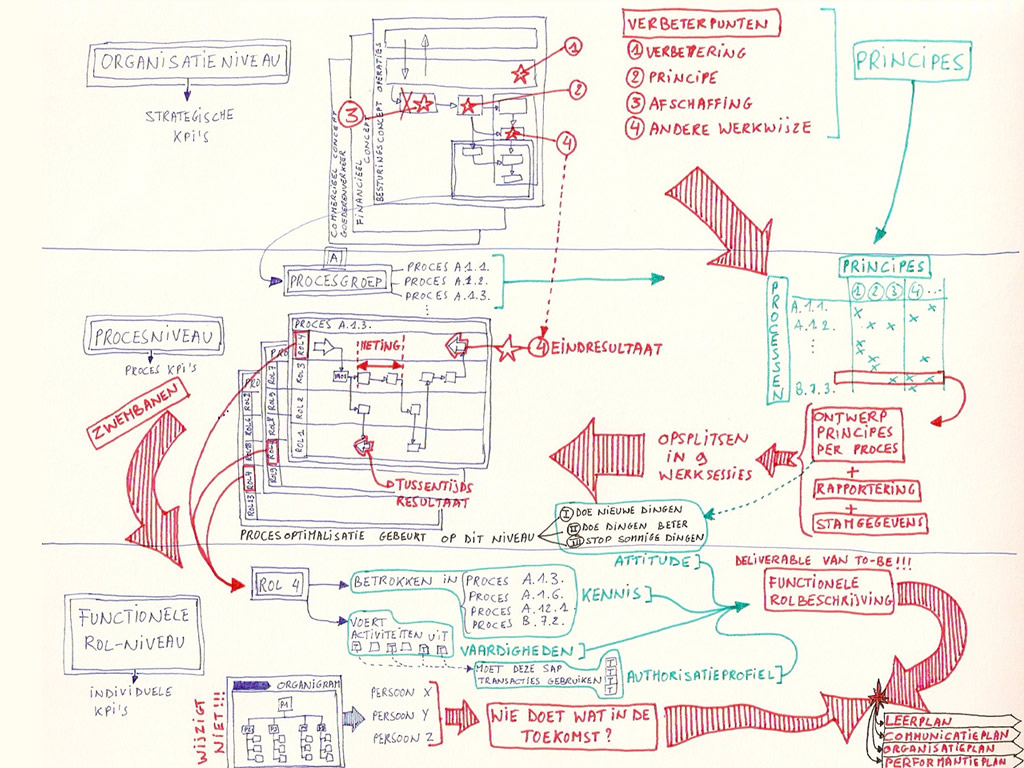 ORGANISATIENIVEAU
STRATEGISCHE
KPI'S
COMMERCIEEL CONCEPT
GOEDERENVERKEER
FINANCIEEL
CONCEPT
BESTURINGSCONCEPT OPERATIES
1
2
3
4
VERBETERPUNTEN
1 VERBETERING
2 PRINCIPE
3 AFSCHAFFING
4 ANDERE WERKWIJZE
PRINCIPES
A
PROCESGROEP
PROCES A.1.1.
PROCES A.1.2.
PROCES A.1.3.
PROCESNIVEAU
PROCES KPI'S
PROCES A.1.3.
ROL 4
ROL 3
ROL 2
ROL 1
METING
4 EINDRESULTAAT
TUSSENTIJDS
RESULTAAT
ZWEMBANEN
PRINCIPES
1 2 3 4 ...
PROCESSEN
A.1.1.
A.1.2.
B.7.3.
ONTWERP
PRINCIPES
PER PROCES
+
RAPPORTERING
+
STAMGEGEVENS
OPSPLITSEN
IN 9
WERKSESSIES
PROCESOPTIMALISATIE GEBEURT OP DIT NIVEAU
I DOE NIEUWE DINGEN
II DOE DINGEN BETER
III STOP SOMMIGE DINGEN
FUNCTIONELE
ROL-NIVEAU
INDIVIDUELE
KPI'S
ROL 4
BETROKKEN IN
PROCES A.1.3.
PROCES A.1.6.
PROCES A.12.1.
PROCES B.7.2.
VOERT
ACTIVITEITEN UIT
MOET DEZE SAP
TRANSACTIES GEBRUIKEN
ATTITUDE
KENNIS
VAARDIGHEDEN
AUTHORISATIEPROFIEL
DELIVERABLE VAN TO-BE!!!
FUNCTIONELE
ROLBESCHRIJVING
WIJZIGT
NIET!!!
ORGANIGRAM
PERSOON X
PERSOON Y
PERSOON Z
WIE DOET WAT IN DE
TOEKOMST?
LEERPLAN
COMMUNICATIEPLAN
ORGANISATIEPLAN
PERFORMANTIEPLAN